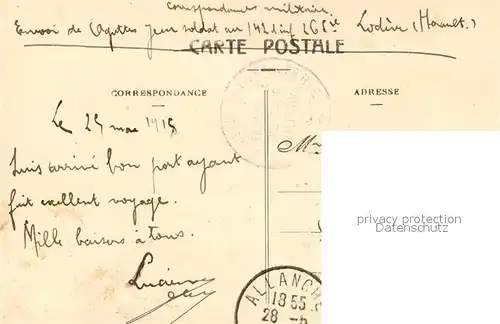 Correspondances militaires.
Envoi de Jean soldat au 142 d'inf 26e Cie Lodève (Herault.)
CARTE POSTALE
CORRESPONDANCE
ADRESSE
Le 25 mai 1915
M
Suis arrivé bon port ayant
fait excellent voyage.
Mille baisers à tous.
Lucien
privacy protection
Datenschutz
ALLANCH
18 55
28 -5